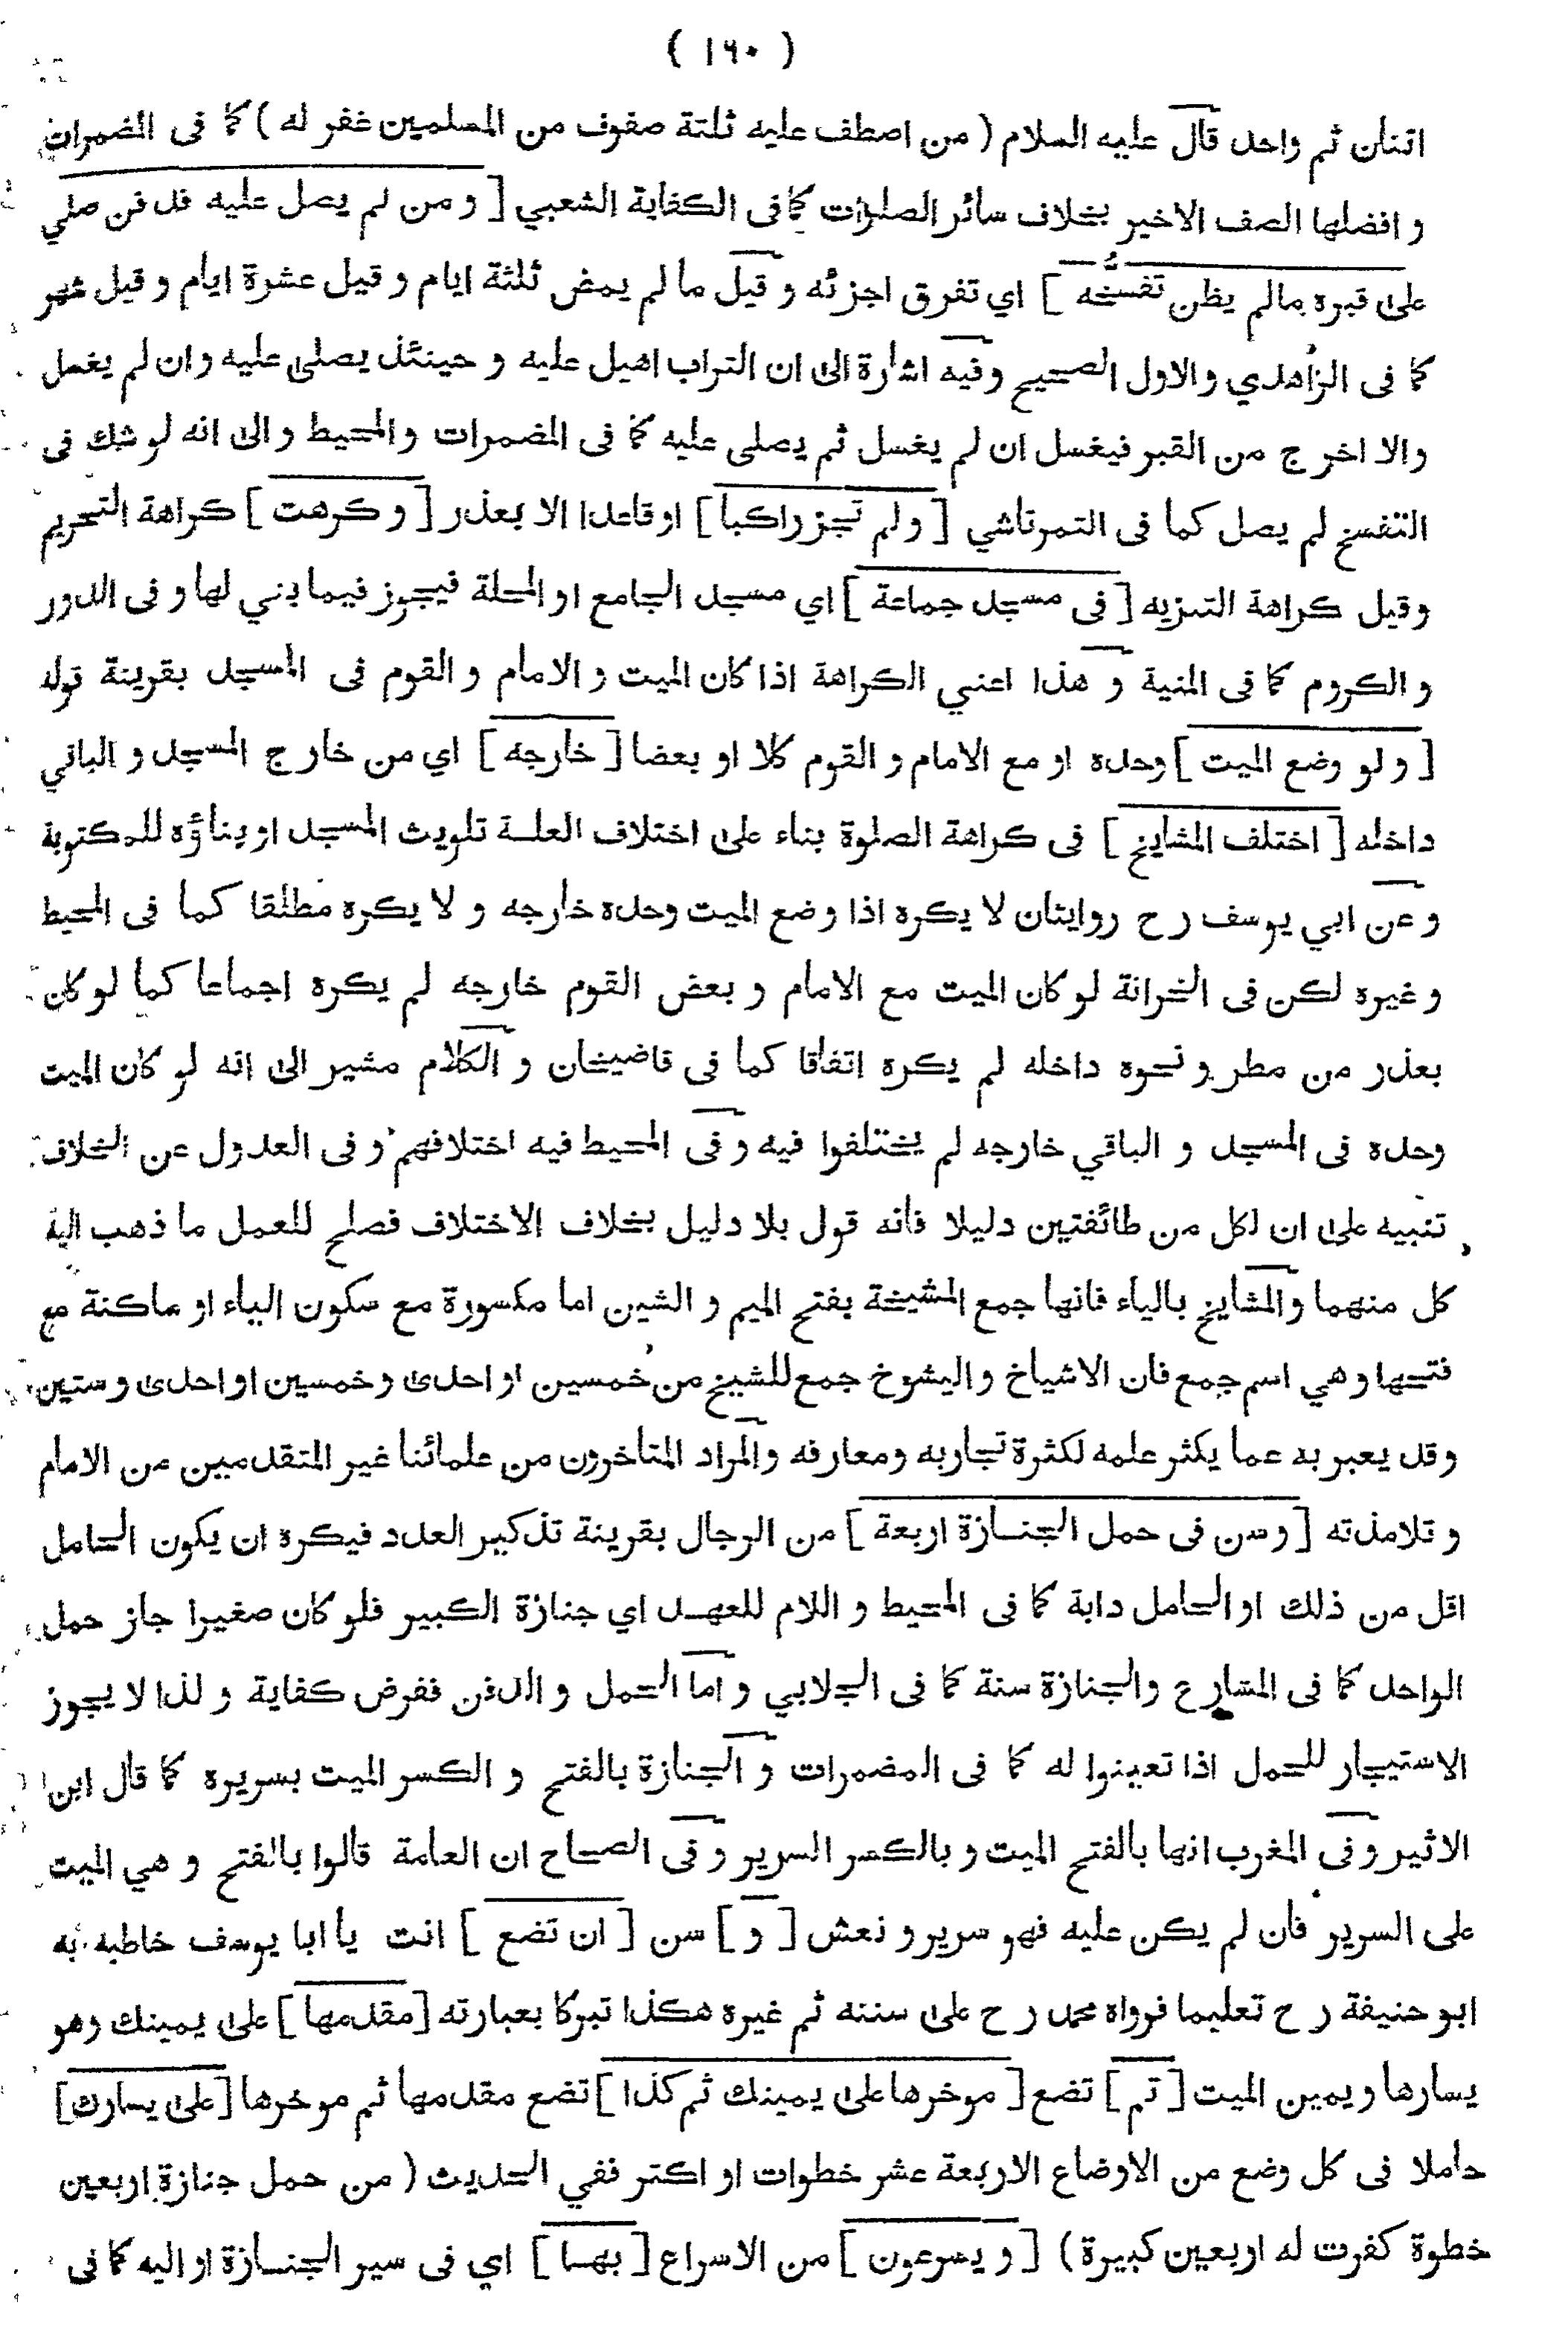 ( ١٦٠ )
اثنان ثم واحد قال عليه السلام ( من اصطف عليه ثلثة صفوف من المسلمين غفر له ) كما فى المضمرات
و افضلها الصف الاخير بخلاف سائر الصلوات كما فى الكفاية الشعبي [ و من لم يصل عليه فدفن صلي
على قبره مالم يظن تفسخه ] اي تفرق اجزئه و قيل ما لم يمض ثلثة ايام و قيل عشرة ايام و قيل شهر
كما فى الزاهدي والاول الصحيح وفيه اشارة الى ان التراب اهيل عليه و حينئذ يصلى عليه وان لم يغسل
والا اخرج من القبر فيغسل ان لم يغسل ثم يصلى عليه كما فى المضمرات والمحيط والى انه لو شك فى
التفسخ لم يصل كما فى التمرتاشي [ و لم تجز راكبا ] او قاعدا الا بعذر [ و كرهت ] كراهة التحريم
وقيل كراهة التنزيه [ فى مسجد جماعة ] اي مسجد الجامع او المحلة فيجوز فيما بني لها و فى الدور
و الكروم كما فى المنية و هذا اعني الكراهة اذا كان الميت و الامام و القوم فى المسجد بقرينة قوله
[ و لو وضع الميت ] وحده او مع الامام و القوم كلا او بعضا [ خارجه ] اي من خارج المسجد و الباقي
داخله [ اختلف المشايخ ] فى كراهة الصلوة بناء على اختلاف العلة تلويث المسجد او بناؤه للمكتوبة
و عن ابي يوسف رح روايتان لا يكره اذا وضع الميت وحده خارجه و لا يكره مطلقا كما فى المحيط
و غيره لكن فى الخزانة لو كان الميت مع الامام و بعض القوم خارجه لم يكره اجماعا كما لو كان
بعذر من مطر و نحوه داخله لم يكره اتفاقا كما فى قاضيخان و الكلام مشير الى انه لو كان الميت
وحده فى المسجد و الباقي خارجه لم يختلفوا فيه و فى المحيط فيه اختلافهم و فى العدول عن الخلاف
تنبيه على ان لكل من طائفتين دليلا فانه قول بلا دليل بخلاف الاختلاف فصلح للعمل ما ذهب اليه
كل منهما والمشايخ بالياء فانها جمع المشيخة بفتح الميم و الشين اما مكسورة مع سكون الياء او ساكنة مع
فتحها و هي اسم جمع فان الاشياخ و الشيوخ جمع للشيخ من خمسين او احدى و خمسين او احدى و ستين
وقد يعبر به عما يكثر علمه لكثرة تجاربه ومعارفه والمراد المتاخرون من علمائنا غير المتقدمين من الامام
و تلامذته [ و سن فى حمل الجنازة اربعة ] من الرجال بقرينة تذكير العدد فيكره ان يكون الحامل
اقل من ذلك او الحامل دابة كما فى المحيط و اللام للعهد اي جنازة الكبير فلو كان صغيرا جاز حمل
الواحد كما فى المشارع والجنازة سنة كما فى الجلابي و اما الحمل و الدفن ففرض كفاية و لذا لا يجوز
الاستيجار للحمل اذا تعينوا له كما فى المضمرات و الجنازة بالفتح و الكسر الميت بسريره كما قال ابن
الاثير و فى المغرب انها بالفتح الميت و بالكسر السرير و فى الصحاح ان العامة قالوا بالفتح و هي الميت
على السرير فان لم يكن عليه فهو سرير و نعش [ و ] سن [ ان تضع ] انت يا ابا يوسف خاطبه به
ابو حنيفة رح تعليما فرواه محمد رح على سننه ثم غيره هكذا تبركا بعبارته [ مقدمها ] على يمينك وهو
يسارها ويمين الميت [ ثم ] تضع [ موخرها على يمينك ثم كذا ] تضع مقدمها ثم موخرها [ على يسارك ]
حاملا فى كل وضع من الاوضاع الاربعة عشر خطوات او اكثر ففي الحديث ( من حمل جنازة اربعين
خطوة كفرت له اربعين كبيرة ) [ و يسرعون ] من الاسراع [ بها ] اي فى سير الجنازة او اليه كما فى